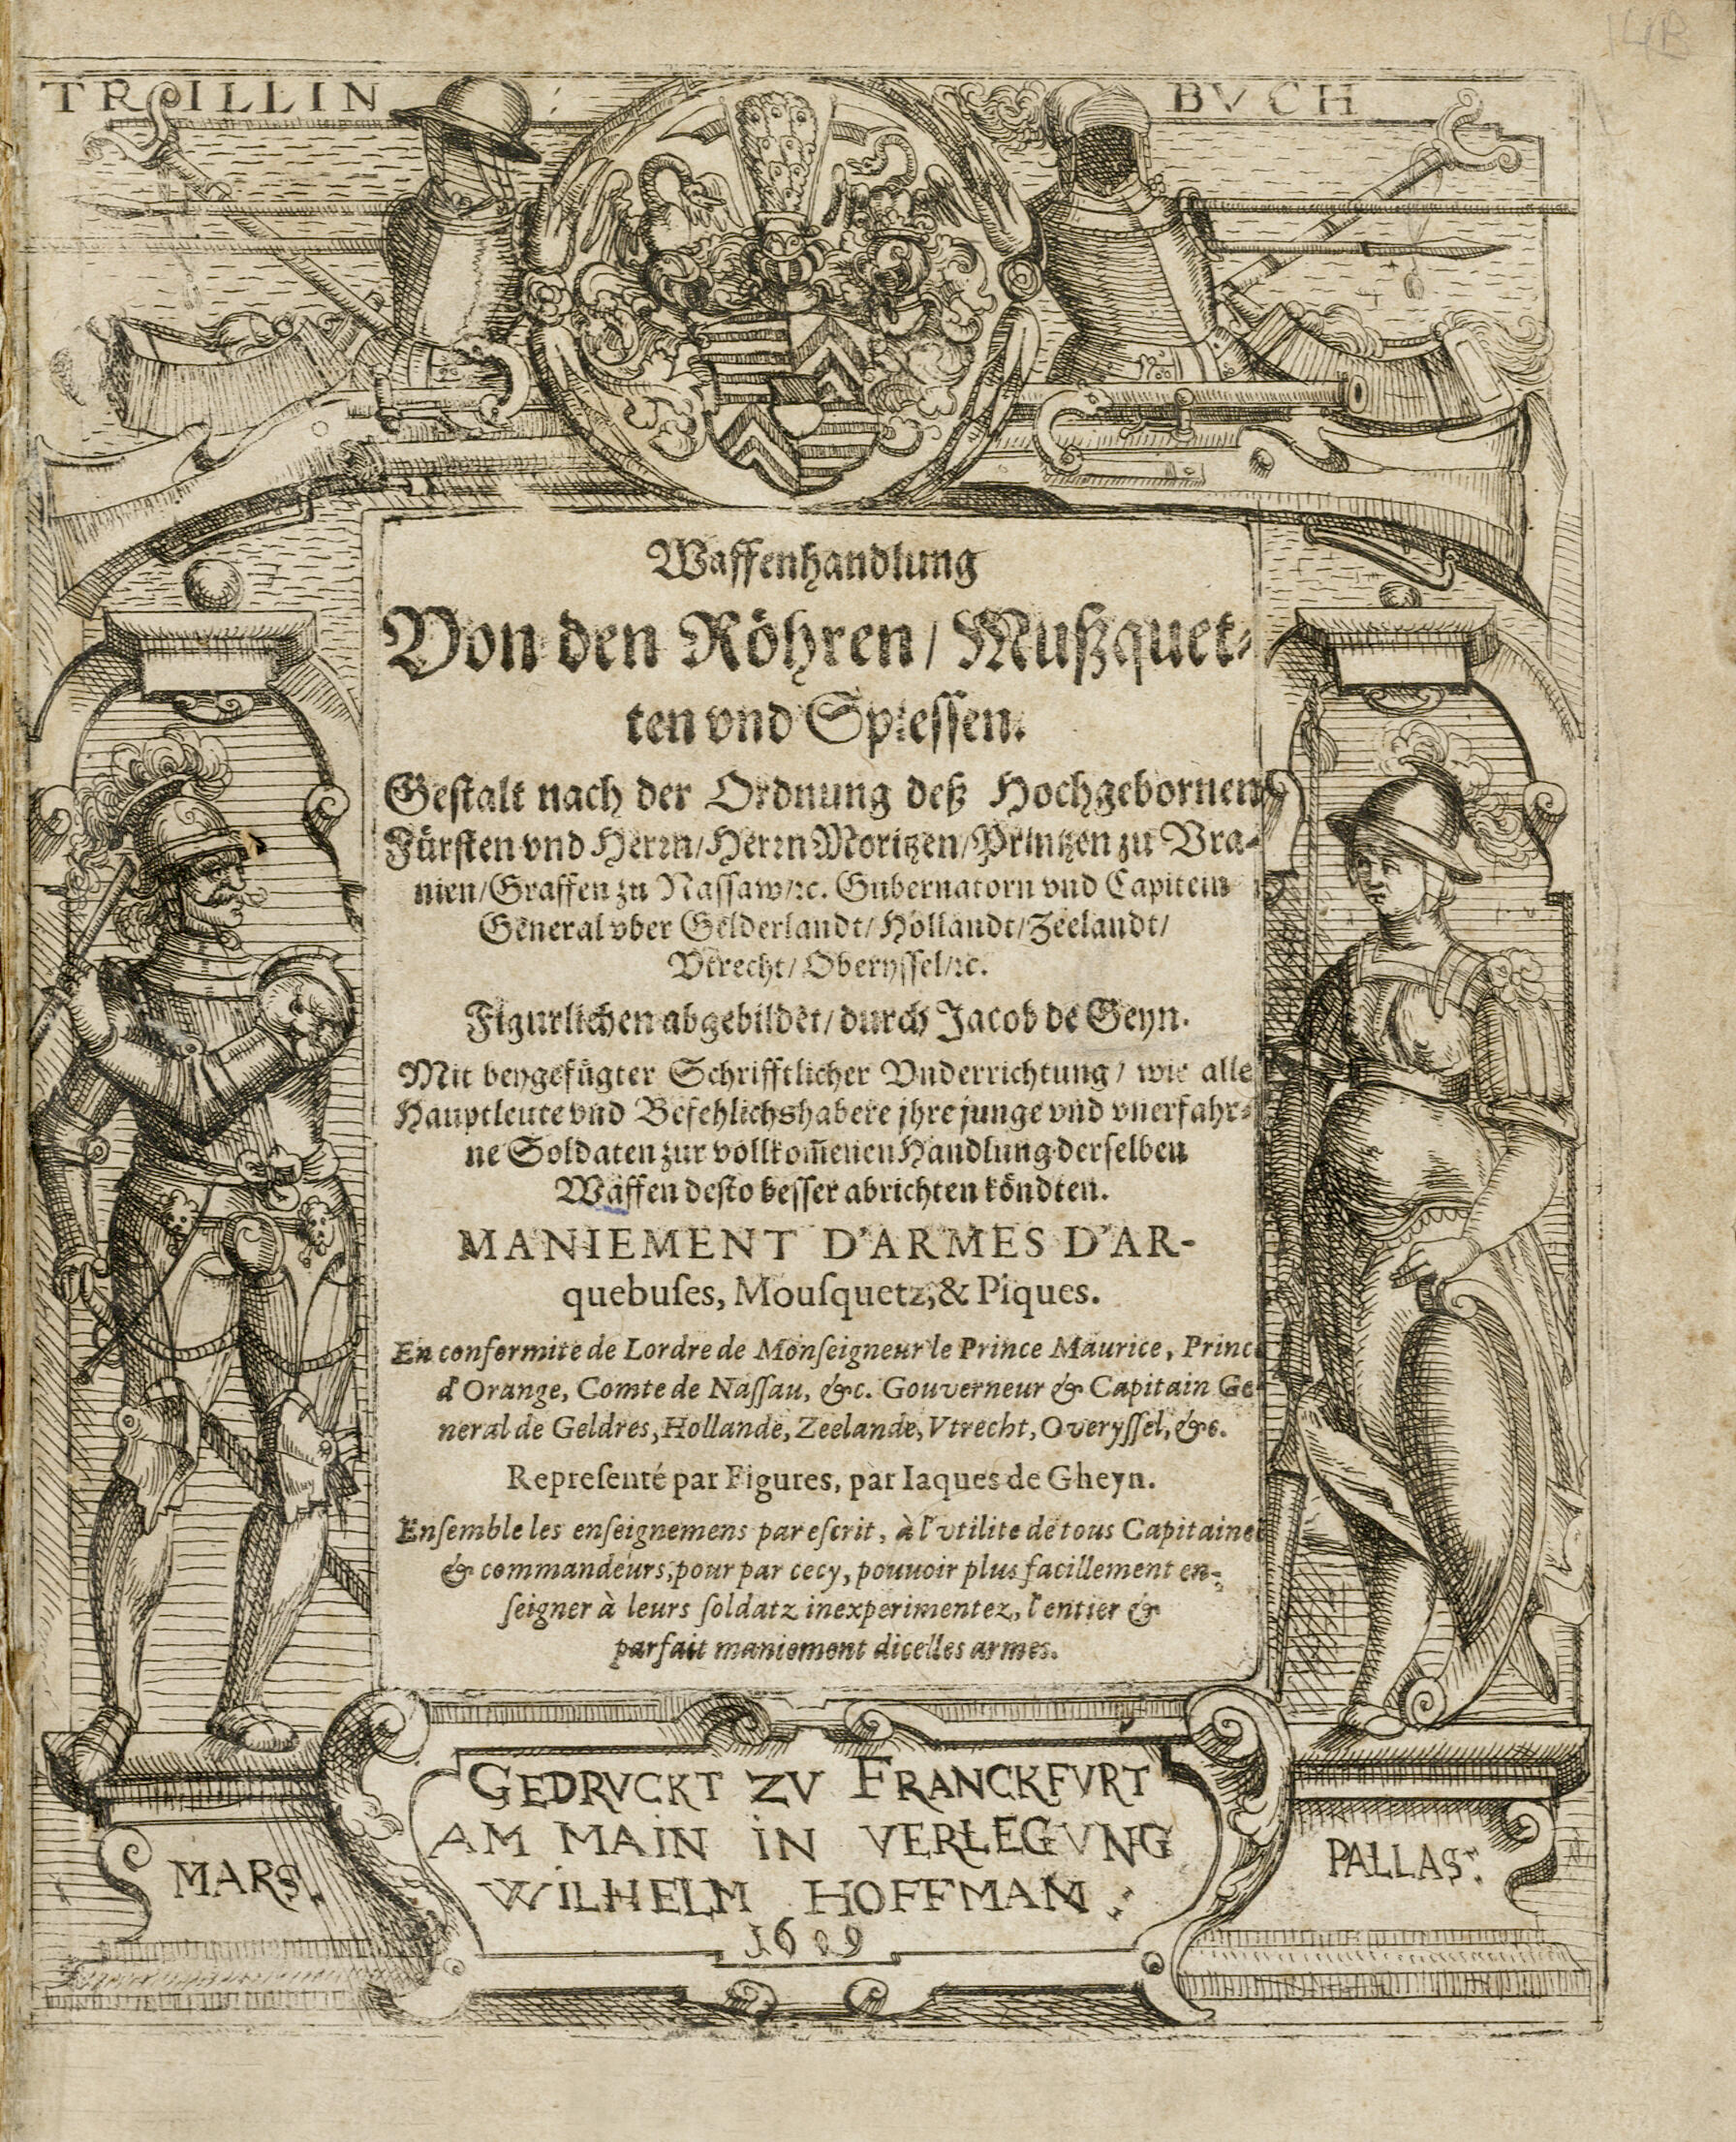 TROILLIN BVCH
Waffenhandlung
Von den Röhren/ Mußquet-
ten vnd Spiessen.
Gestalt nach der Ordnung deß Hochgebornen
Fürsten vnd Herrn/ Herrn Moritzen/ Printzen zu Vra-
nien/ Graffen zu Nassaw/ ꝛc. Gubernatorn vnd Capitein
General vber Gelderlandt/ Hollandt/ Zeelandt/
Vtrecht/ Oberyssel/ ꝛc.
Figurlichen abgebildet/ durch Jacob de Geyn.
Mit beygefügter Schrifftlicher Vnderrichtung/ wie alle
Hauptleute vnd Befehlichshabere jhre junge vnd vnerfahr-
ne Soldaten zur vollkom̃enen Handlung derselben
Waffen desto besser abrichten köndten.
MANIEMENT D'ARMES D'AR-
quebuſes, Mouſquetz, & Piques.
En conformite de Lordre de Monſeigneur le Prince Maurice, Prince
d'Orange, Comte de Naſſau, &c. Gouverneur & Capitain Ge-
neral de Geldres, Hollande, Zeelande, Vtrecht, Overyſſel, &c.
Repreſenté par Figures, par Iaques de Gheyn.
Enſemble les enſeignemens par eſcrit, à l'vtilite de tous Capitaines
& commandeurs, pour par cecy, pouuoir plus facillement en-
ſeigner à leurs ſoldatz inexperimentez, l'entier &
parfait maniement dicelles armes.
GEDRVCKT ZV FRANCKFVRT
AM MAIN IN VERLEGVNG
WILHELM HOFFMAN :
1609
MARS.
PALLAS: